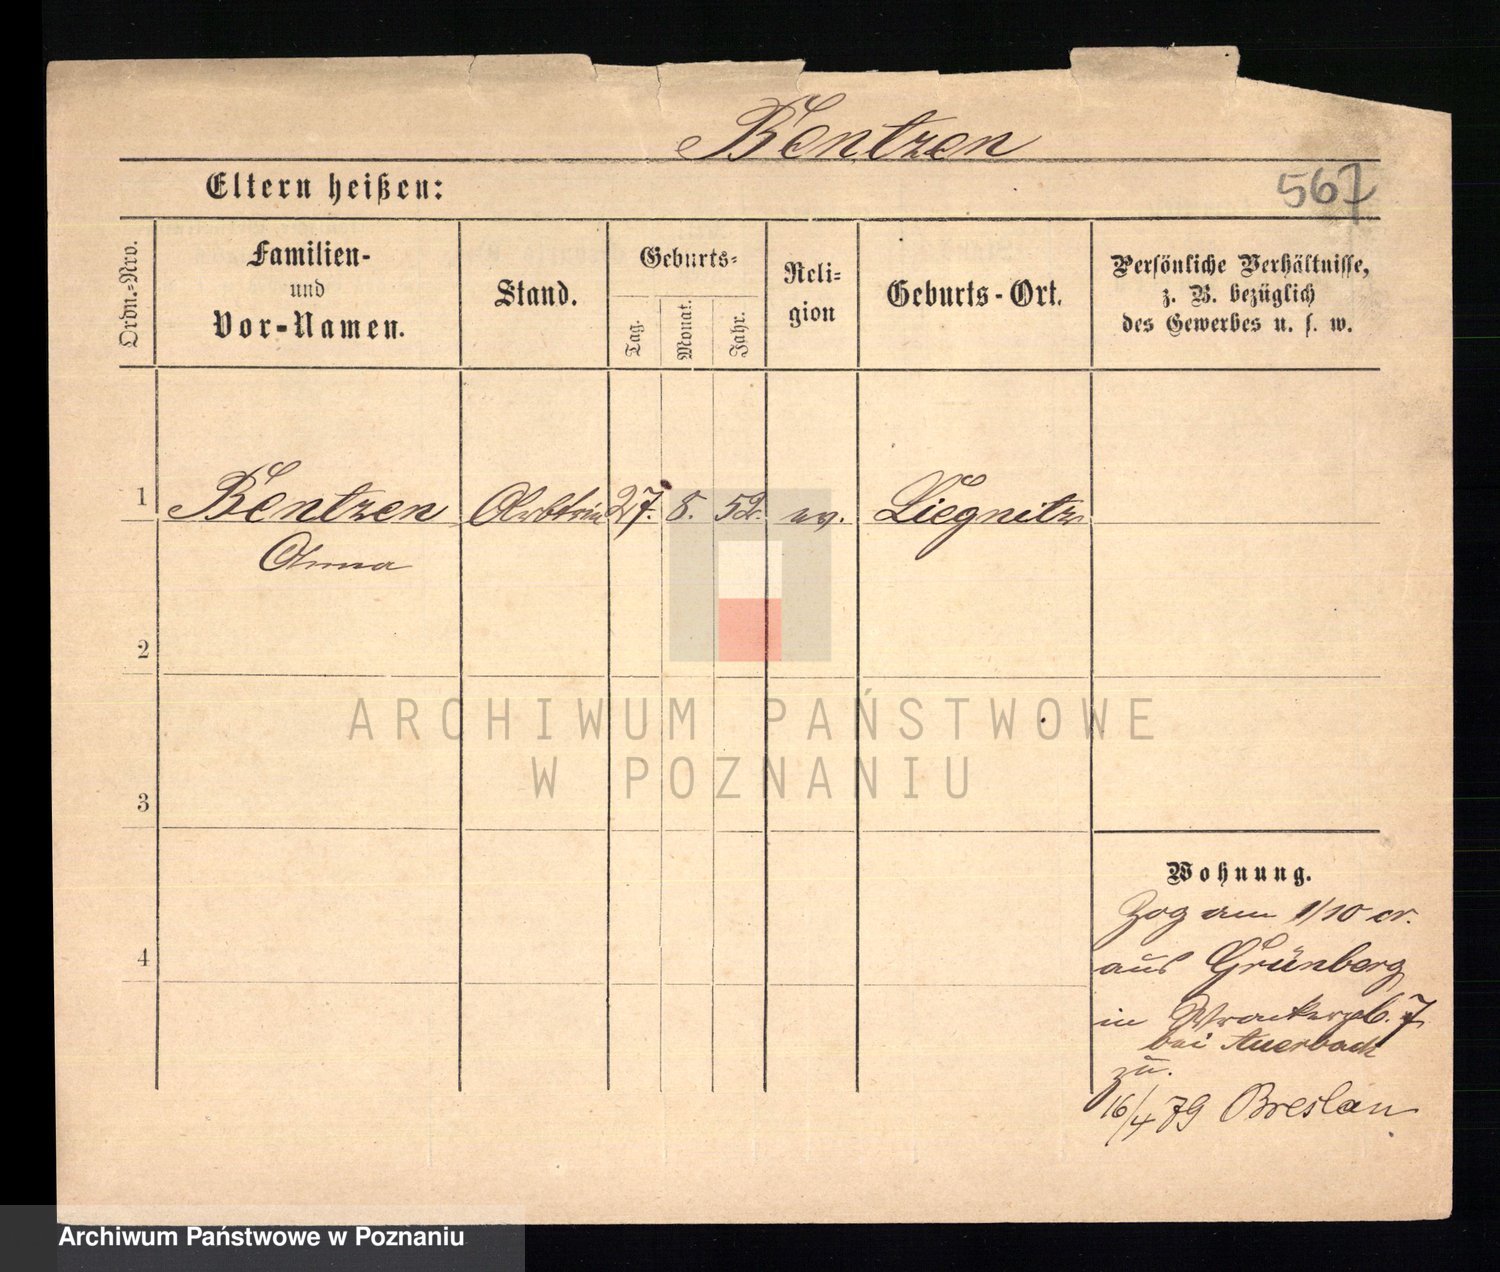 Bentzen
Eltern heißen:
567
Ordn.-Nro.
Familien-
und
Vor-Namen.
Stand.
Geburts-
Tag.
Monat.
Jahr.
Reli-
gion
Geburts-Ort.
Persönliche Verhältnisse,
z. B. bezüglich
des Gewerbes u. s. w.
1
Bentzen
27.
8.
52.
ev.
Liegnitz
Anna
2
ARCHIWUM PAŃSTWOWE
W POZNANIU
3
Wohnung.
Zog am 1/10 cr.
aus Grünberg
4
in 7
bei Auerbach
zu.
16/4 79 Breslau
Archiwum Państwowe w Poznaniu